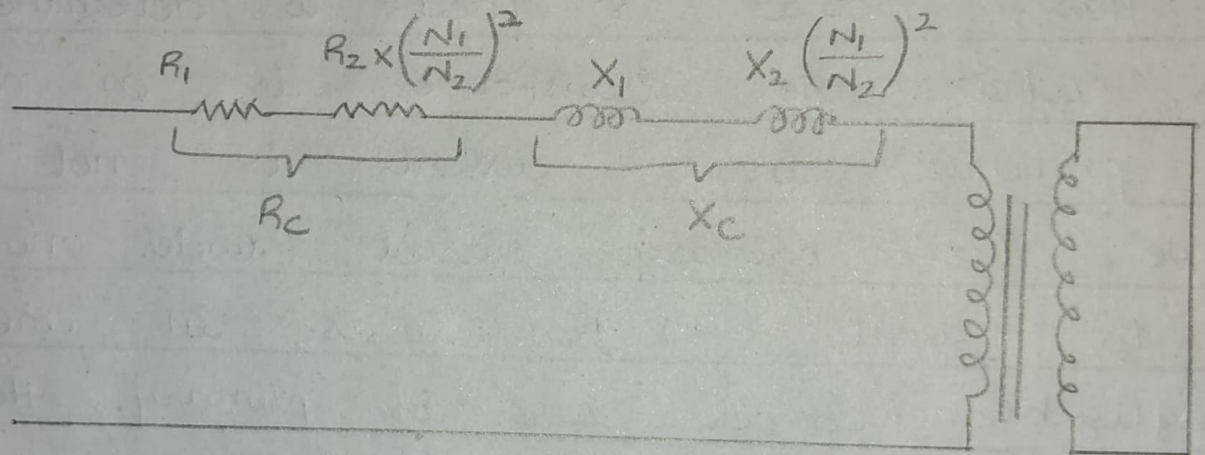 R₁ R₂ × (N₁/N₂)² X₁ X₂ (N₁/N₂)²
R_C X_C